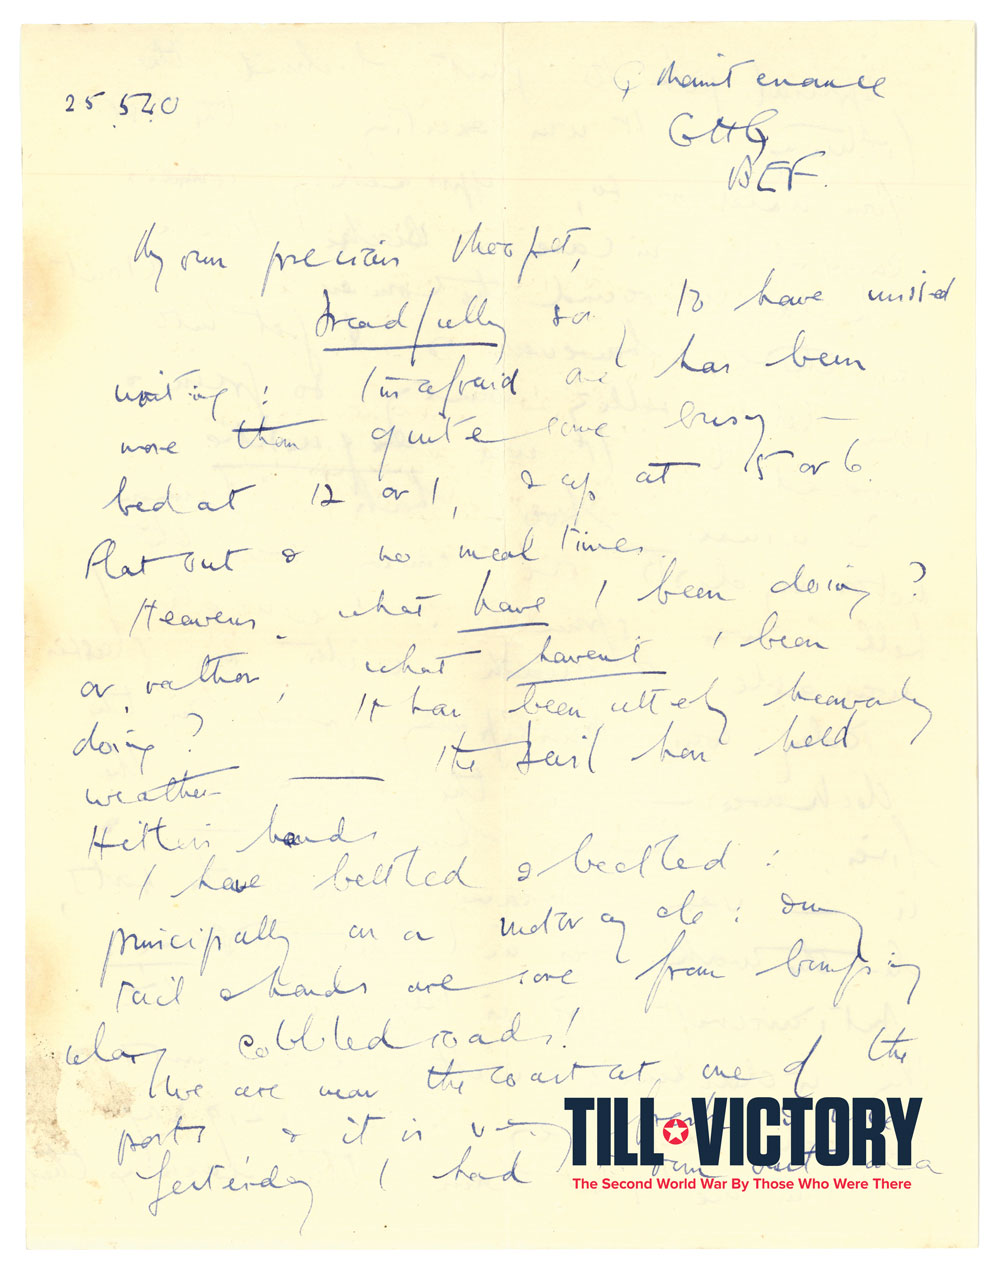 25.5.40
Q Maintenance
GHQ
BEF.
My own precious
Dreadfully so I to have missed
writing: I'm afraid one has been
more than quite some busy —
bed at 12 or 1, & up at 5 or 6.
Flat out & no meal times.
Heavens, what have I been doing?
or, rather, what haven't I been
doing? It has been utterly heavenly
weather — the Devil has held
Hitler's hands
I have belted & belted:
principally on a motorcycle: my
tail & hands are sore from bumping
along cobbled roads!
We are near the coast at one of the
ports & it is very
Yesterday I had a
TILL VICTORY
The Second World War By Those Who Were There